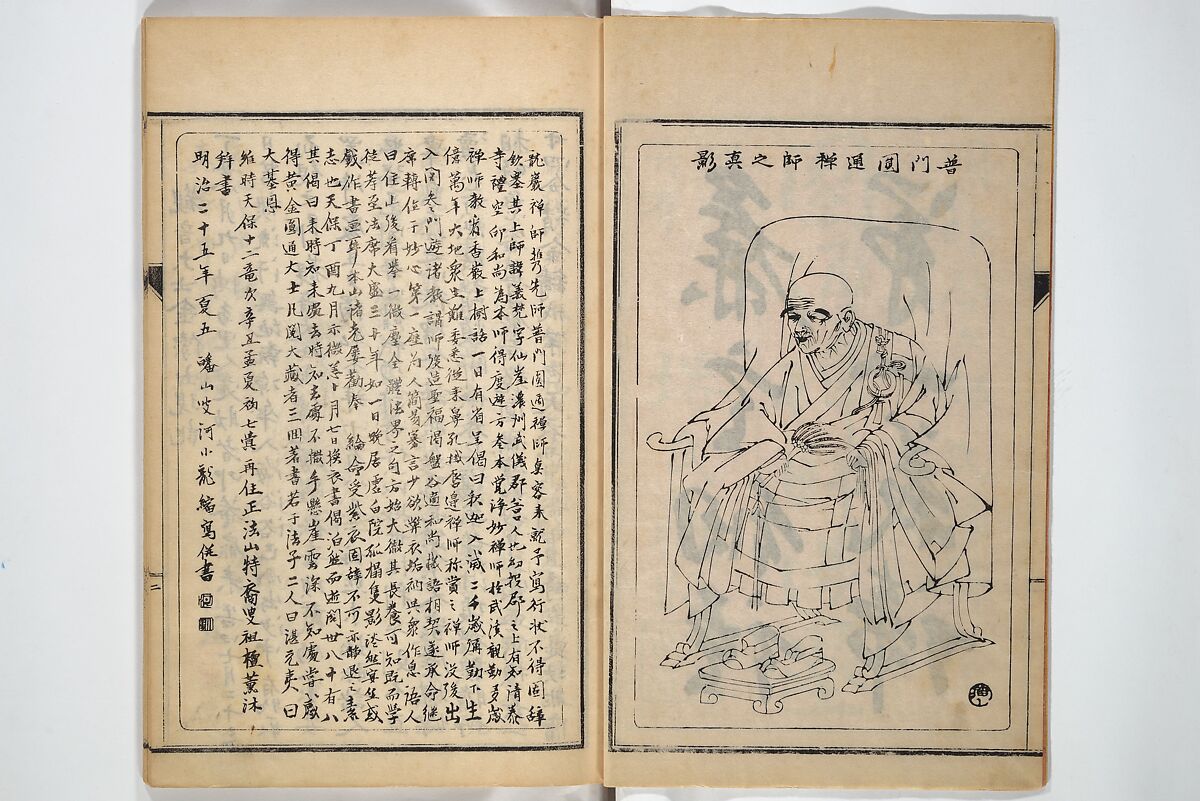 普門圓通禪師之真影
龍巖禪師携先師普門圓通禪師真容來就予寫行狀不得固辭
欽墓其上師諱義梵字仙崖濃州武儀郡人也幼投郡之上有知清泰
寺禮空印和尚為本師得度遊方參本覺諍妙禪師於武溪親勤多歲
禪師教看香嚴上樹話一日有省呈偈曰釈迦入滅二千歲彌勒下生
億萬年大地衆生難委悉從来鼻孔搭唇邊禪師称賞之禪師没後出
入関参之門遊諸教謂師後造聖福謁盤谷適和尚機語相契遂承命继
席轉位于妙心第一座為人簡易寡言少欲弊衣垢衲與衆作息語人
曰住山後看拳一微塵全體法界之句方始大徹其長養可知既而學
徒荐至法席大盛三十年如一日晚居虛白院孤榻隻影湛然宴坐或
戲作書画耳本山諸老屢勸奉 綸命受紫衣固辭不可亦静退之素
志也天保丁酉九月示微恙十月七日換衣書偈泊然而逝閲世八十有八
其偈曰来時知来處去時知去處不撒手懸崖雲深不知處嘗戲
得黃金圓通大士凡閲大藏者三回著書若干法子二人曰湛元夷曰
大基恩
維時天保十二竜次辛丑孟夏初七蓂再住正法山特裔叟祖檀薫沐
拜書
明治二十五年夏五 皤山岐河小龍縮寫併書
二